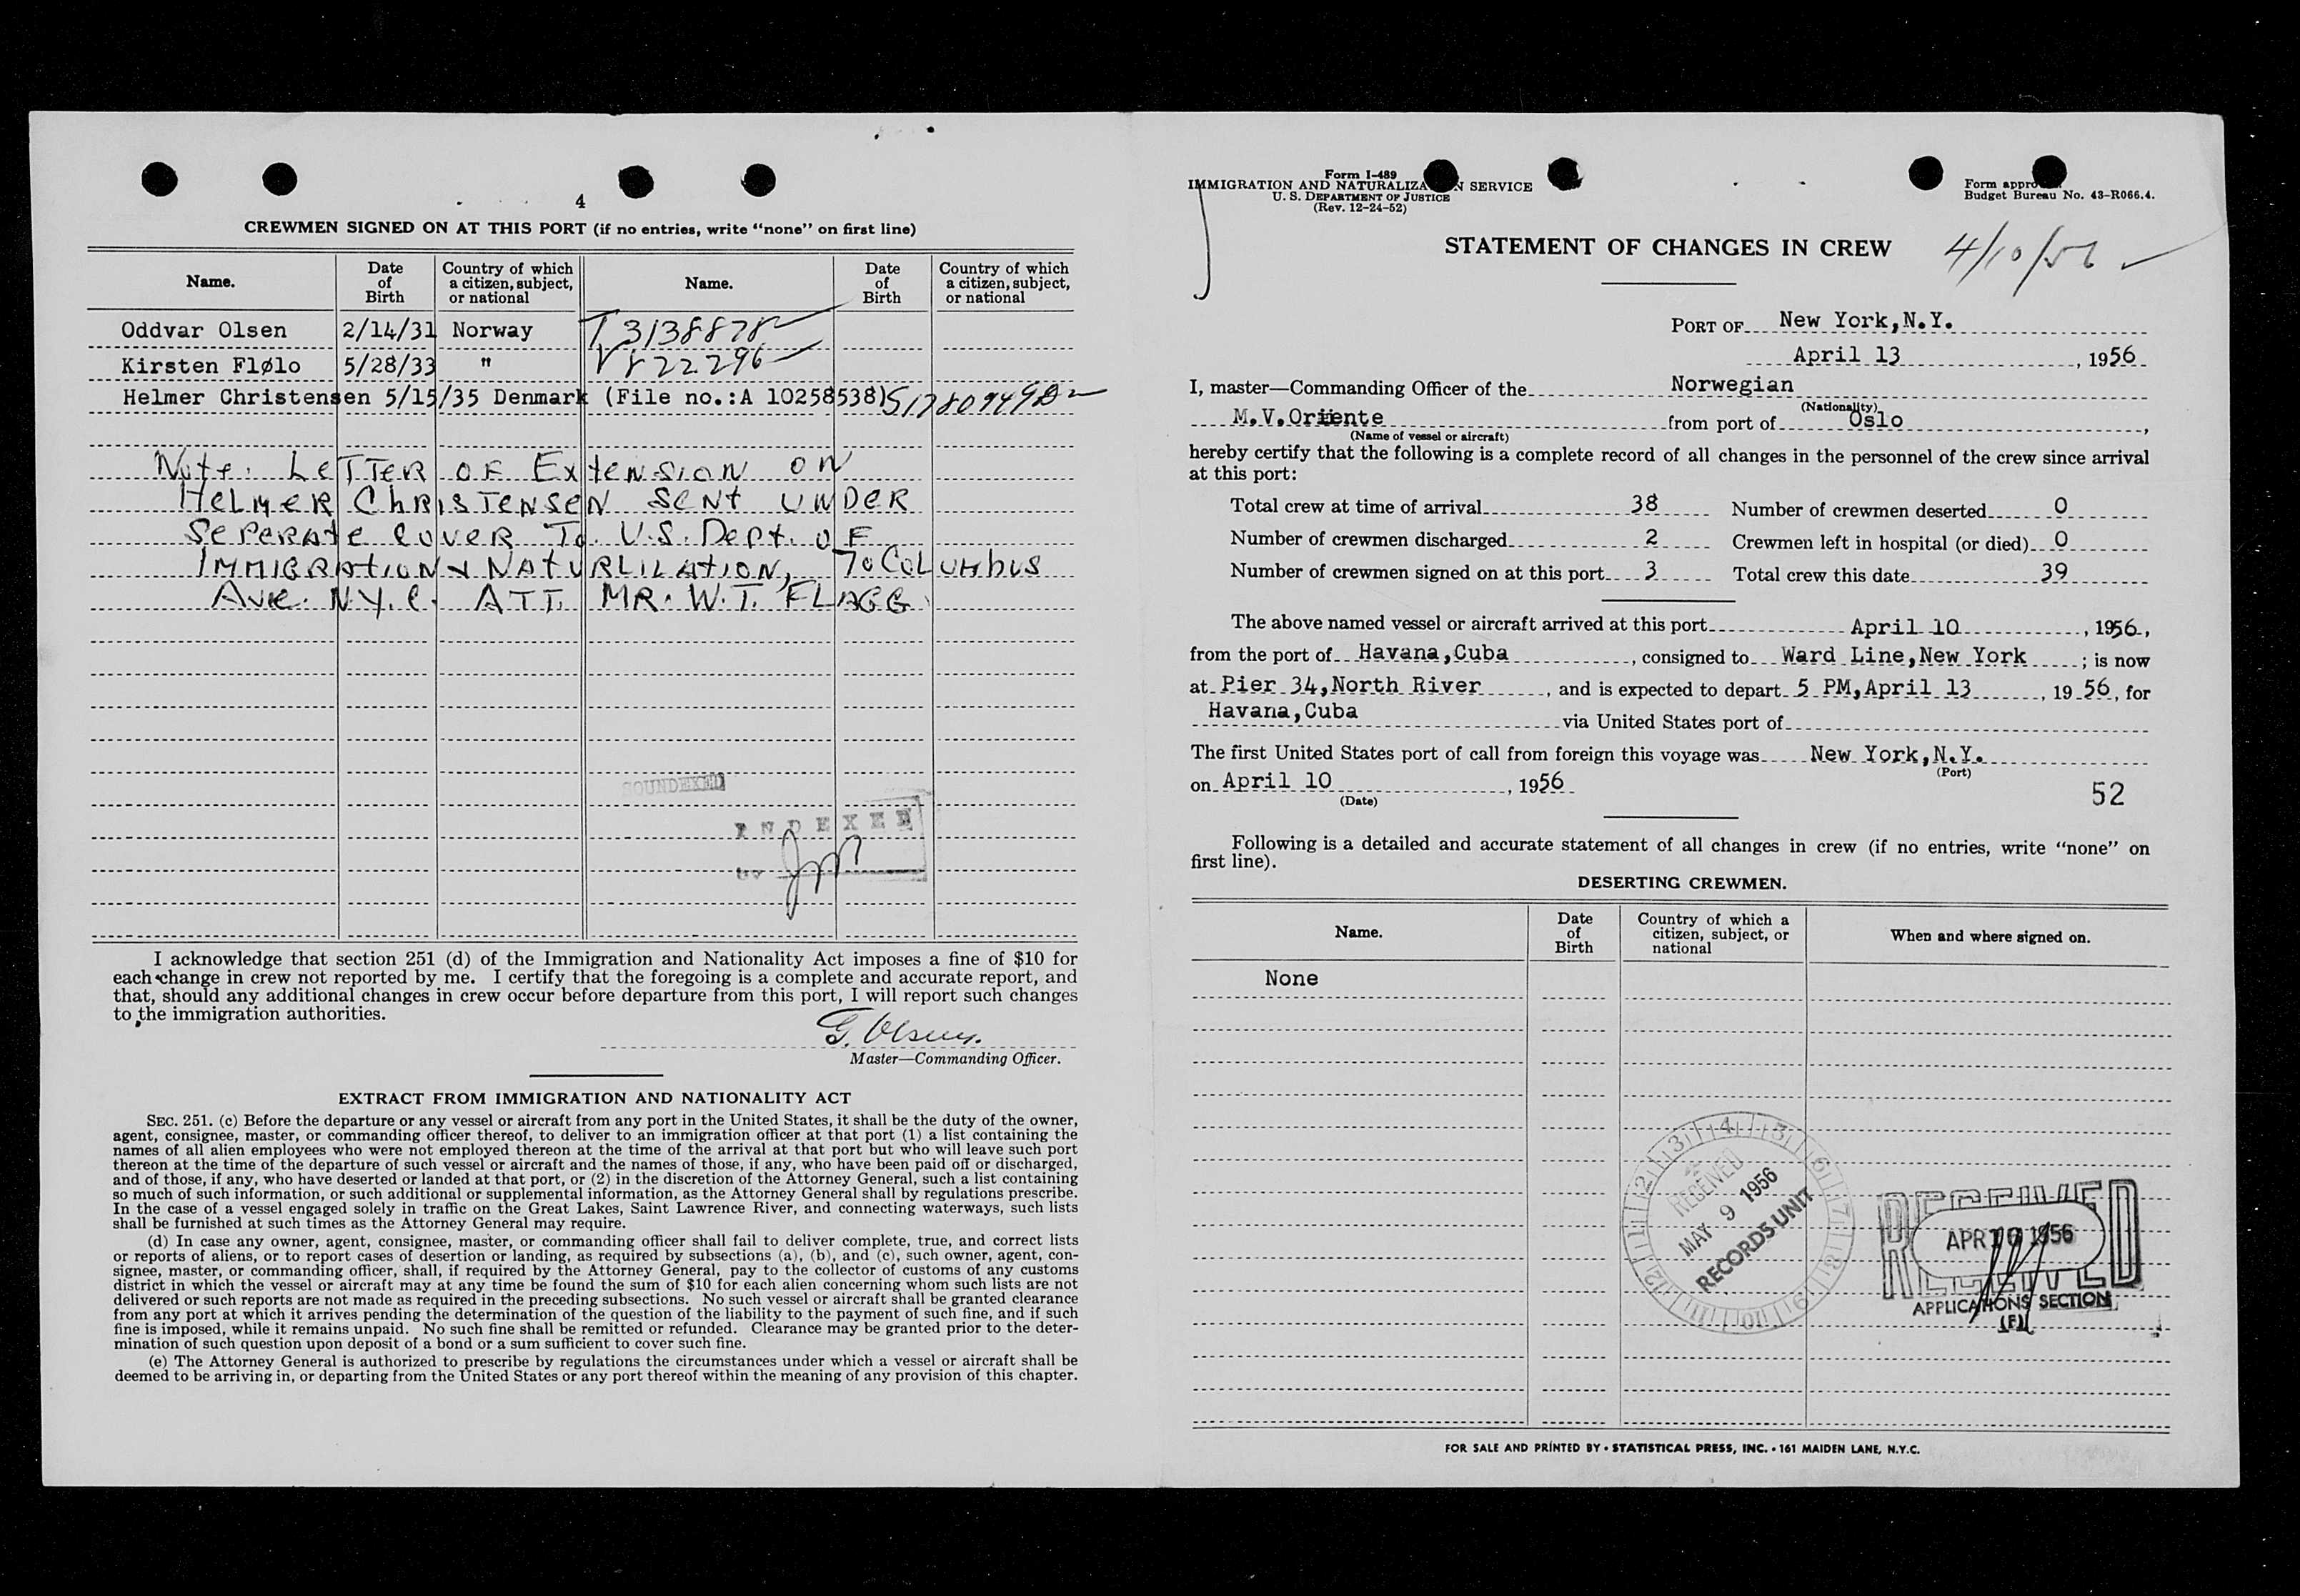 4
CREWMEN SIGNED ON AT THIS PORT (if no entries, write "none" on first line)
Name. Date of Birth Country of which a citizen, subject, or national Name. Date of Birth Country of which a citizen, subject, or national
Oddvar Olsen 2/14/31 Norway T 3138878
Kirsten Flølo 5/28/33 " 822296
Helmer Christensen 5/15/35 Denmark (File no.:A 10258538)
Note: LETTER OF EXTENSION ON
HELMER CHRISTENSEN SENT UNDER
SEPERATE COVER TO U.S. DEPT. OF
IMMIGRATION & NATURLILATION, 70 COLUMBUS
AVE. N.Y.C. ATT. MR. W.T. FLAGG
SOUNDEXED
INDEXED
BY
I acknowledge that section 251 (d) of the Immigration and Nationality Act imposes a fine of $10 for
each change in crew not reported by me. I certify that the foregoing is a complete and accurate report, and
that, should any additional changes in crew occur before departure from this port, I will report such changes
to the immigration authorities.
G. Olsen
Master—Commanding Officer.
EXTRACT FROM IMMIGRATION AND NATIONALITY ACT
SEC. 251. (c) Before the departure or any vessel or aircraft from any port in the United States, it shall be the duty of the owner,
agent, consignee, master, or commanding officer thereof, to deliver to an immigration officer at that port (1) a list containing the
names of all alien employees who were not employed thereon at the time of the arrival at that port but who will leave such port
thereon at the time of the departure of such vessel or aircraft and the names of those, if any, who have been paid off or discharged,
and of those, if any, who have deserted or landed at that port, or (2) in the discretion of the Attorney General, such a list containing
so much of such information, or such additional or supplemental information, as the Attorney General shall by regulations prescribe.
In the case of a vessel engaged solely in traffic on the Great Lakes, Saint Lawrence River, and connecting waterways, such lists
shall be furnished at such times as the Attorney General may require.
(d) In case any owner, agent, consignee, master, or commanding officer shall fail to deliver complete, true, and correct lists
or reports of aliens, or to report cases of desertion or landing, as required by subsections (a), (b), and (c), such owner, agent, con-
signee, master, or commanding officer, shall, if required by the Attorney General, pay to the collector of customs of any customs
district in which the vessel or aircraft may at any time be found the sum of $10 for each alien concerning whom such lists are not
delivered or such reports are not made as required in the preceding subsections. No such vessel or aircraft shall be granted clearance
from any port at which it arrives pending the determination of the question of the liability to the payment of such fine, and if such
fine is imposed, while it remains unpaid. No such fine shall be remitted or refunded. Clearance may be granted prior to the deter-
mination of such question upon deposit of a bond or a sum sufficient to cover such fine.
(e) The Attorney General is authorized to prescribe by regulations the circumstances under which a vessel or aircraft shall be
deemed to be arriving in, or departing from the United States or any port thereof within the meaning of any provision of this chapter.
Form I-489
IMMIGRATION AND NATURALIZATION SERVICE
U. S. DEPARTMENT OF JUSTICE
(Rev. 12-24-52)
Form approved.
Budget Bureau No. 43-R066.4.
STATEMENT OF CHANGES IN CREW 4/10/56
PORT OF New York,N.Y.
April 13, 1956
I, master—Commanding Officer of the Norwegian
(Nationality)
M.V.Oriente from port of Oslo,
(Name of vessel or aircraft)
hereby certify that the following is a complete record of all changes in the personnel of the crew since arrival
at this port:
Total crew at time of arrival 38 Number of crewmen deserted 0
Number of crewmen discharged 2 Crewmen left in hospital (or died) 0
Number of crewmen signed on at this port 3 Total crew this date 39
The above named vessel or aircraft arrived at this port April 10, 1956,
from the port of Havana,Cuba, consigned to Ward Line,New York; is now
at Pier 34,North River, and is expected to depart 5 PM,April 13, 1956, for
Havana,Cuba via United States port of
The first United States port of call from foreign this voyage was New York,N.Y.
(Port)
on April 10, 1956
(Date)
52
Following is a detailed and accurate statement of all changes in crew (if no entries, write "none" on
first line).
DESERTING CREWMEN.
Name. Date of Birth Country of which a citizen, subject, or national When and where signed on.
None
RECEIVED
MAY 9 1956
RECORDS UNIT
RECEIVED
APR 1956
APPLICATIONS SECTION
(F)
FOR SALE AND PRINTED BY • STATISTICAL PRESS, INC. • 161 MAIDEN LANE, N.Y.C.